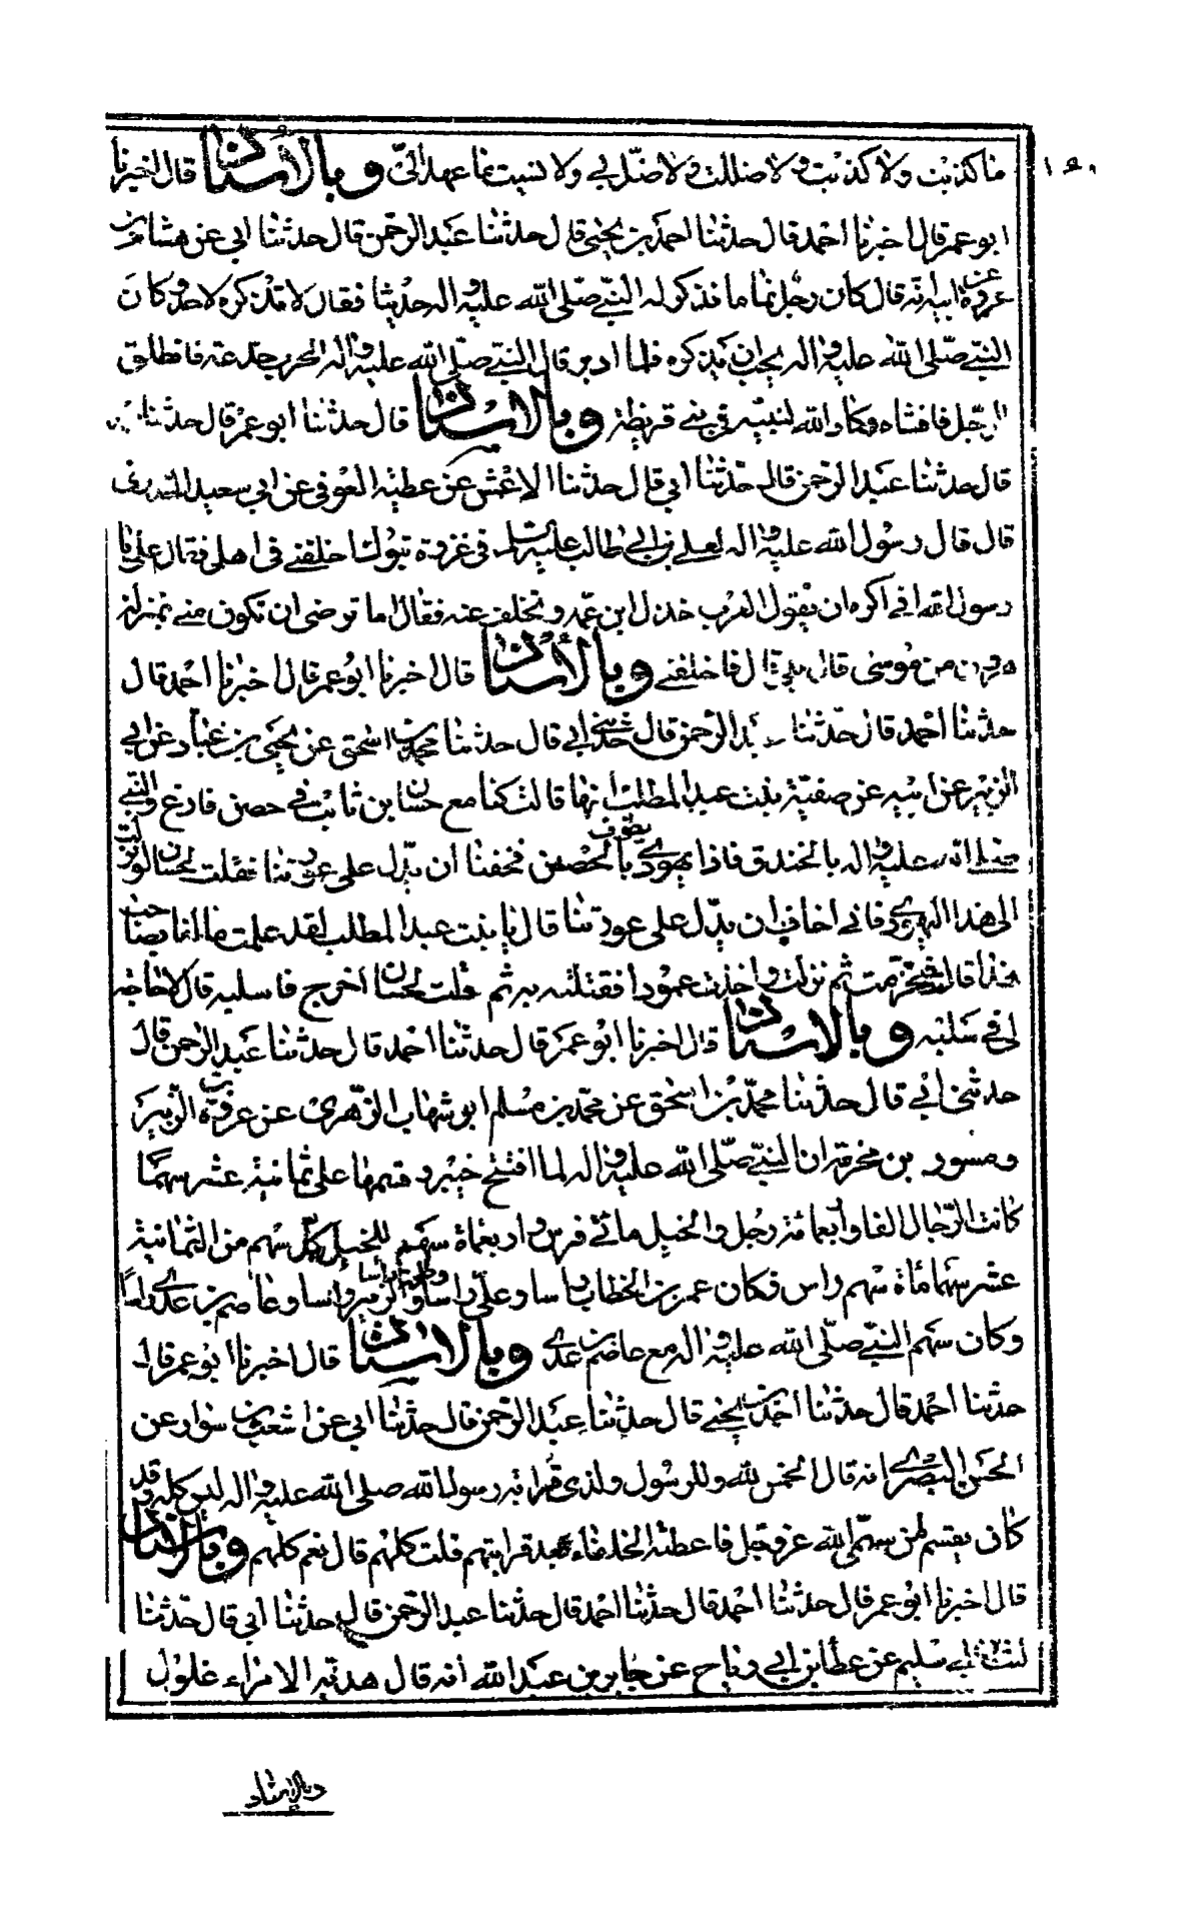 ١٦٠
ما كذبت ولا كذبت ولا ضللت ولا ضل بي ولا نسيت ما عهد الي وبالاسناد قال اخبرنا
ابو عمر قال اخبرنا احمد قال حدثنا احمد بن يحيى قال حدثنا عبد الرحمن قال حدثنا ابي عن هشام بن
عروة عن ابيه انه قال كان رجل نماما فذكر له النبي صلى الله عليه واله حديثا فقال لا تذكره لاحد وكان
النبي صلى الله عليه واله يحب ان يذكره فلما ادبر قال النبي صلى الله عليه واله الحرب خدعة فانطلق
الرجل فافشاه وكاد الله لنبيه في بني قريظة وبالاسناد قال حدثنا ابو عمر قال حدثنا
قال حدثنا عبد الرحمن قال حدثنا ابي قال حدثنا الاعمش عن عطية العوفي عن ابي سعيد الخدري
قال قال رسول الله عليه واله لعلي بن ابي طالب عليه السلم في غزوة تبوك اخلفني في اهلي فقال علي يا
رسول الله اني اكره ان يقول العرب خذل ابن عمه وتخلف عنه فقال اما ترضى ان تكون مني بمنزلة
هرون من موسى قال بلى قال فاخلفني وبالاسناد قال اخبرنا ابو عمر قال اخبرنا احمد قال
حدثنا احمد قال حدثنا عبد الرحمن قال حدثني ابي قال حدثنا محمد بن اسحق عن يحيى بن عباد عن ابي
الزبير عن ابيه عن صفية بنت عبد المطلب انها قالت كنا مع حسان بن ثابت في حصن فارع والنبي
صلى الله عليه واله بالخندق فاذا يهودي يطوف بالحصن فخفنا ان يدل على عورتنا فقلت لحسان لو نزلت
الى هذا اليهودي فاني اخاف ان يدل على عورتنا قال يا بنت عبد المطلب لقد علمت ما انا بصاحب
هذا قالت فتحزمت ثم نزلت واخذت عمودا فقتلته به ثم قلت لحسان اخرج فاسلبه قال لا حاجة
لي في سلبه وبالاسناد قال اخبرنا ابو عمر قال حدثنا احمد قال حدثنا عبد الرحمن قال
حدثني ابي قال حدثنا محمد بن اسحق عن محمد بن مسلم ابو شهاب الزهري عن عروة بن الزبير
ومسور بن مخرمة ان النبي صلى الله عليه واله لما افتتح خيبر وقسمها على ثمانية عشر سهما
كانت الرجال الفا وأبعمائة رجل والخيل مائتي فرس واربعمأة سهم للخيل كل سهم من الثمانية
عشر سهما مأة سهم راس فكان عمر بن الخطاب راسا وعلي راسا وطلحة راسا والزبير راسا وعاصم بن عدي راسا
وكان سهم النبي صلى الله عليه واله مع عاصم بن عدي وبالاسناد قال اخبرنا ابو عمر قال
حدثنا احمد قال حدثنا احمد بن يحيى قال حدثنا عبد الرحمن قال حدثنا ابي عن اشعث بن سوار عن
الحسن البصري انه قال الخمس لله وللرسول ولذي قرابة رسول الله صلى الله عليه واله ليس كله وقد
كان يقسم لمن سمى الله عز وجل فاعطته الخلفاء بعد قرابتهم قلت كلهم قال نعم كلهم وبالاسناد
قال اخبرنا ابو عمر قال حدثنا احمد قال حدثنا احمد قال حدثنا عبد الرحمن قال حدثنا ابي قال حدثنا
ليث بن ابي سليم عن عطا بن ابي رباح عن جابر بن عبد الله انه قال هدية الامراء غلول
وبالاسناد